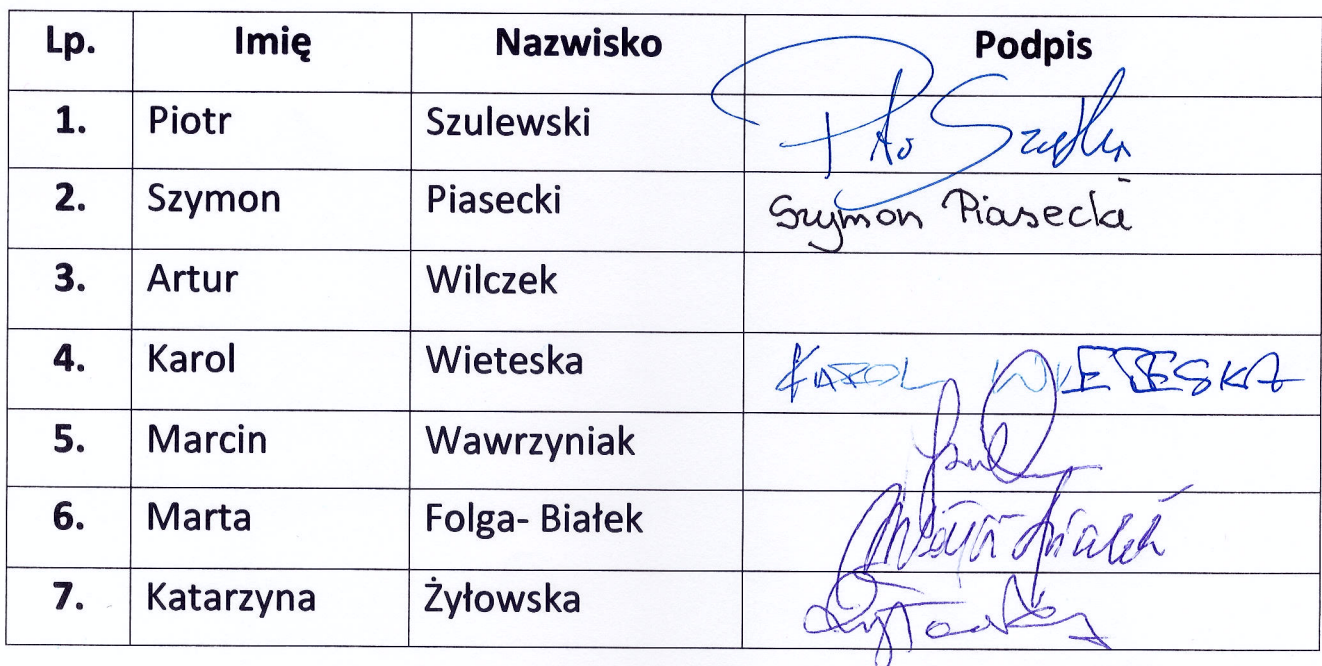 Lp. Imię Nazwisko Podpis
1. Piotr Szulewski
2. Szymon Piasecki Szymon Piasecki
3. Artur Wilczek
4. Karol Wieteska KAROL WIETESKA
5. Marcin Wawrzyniak
6. Marta Folga- Białek
7. Katarzyna Żyłowska